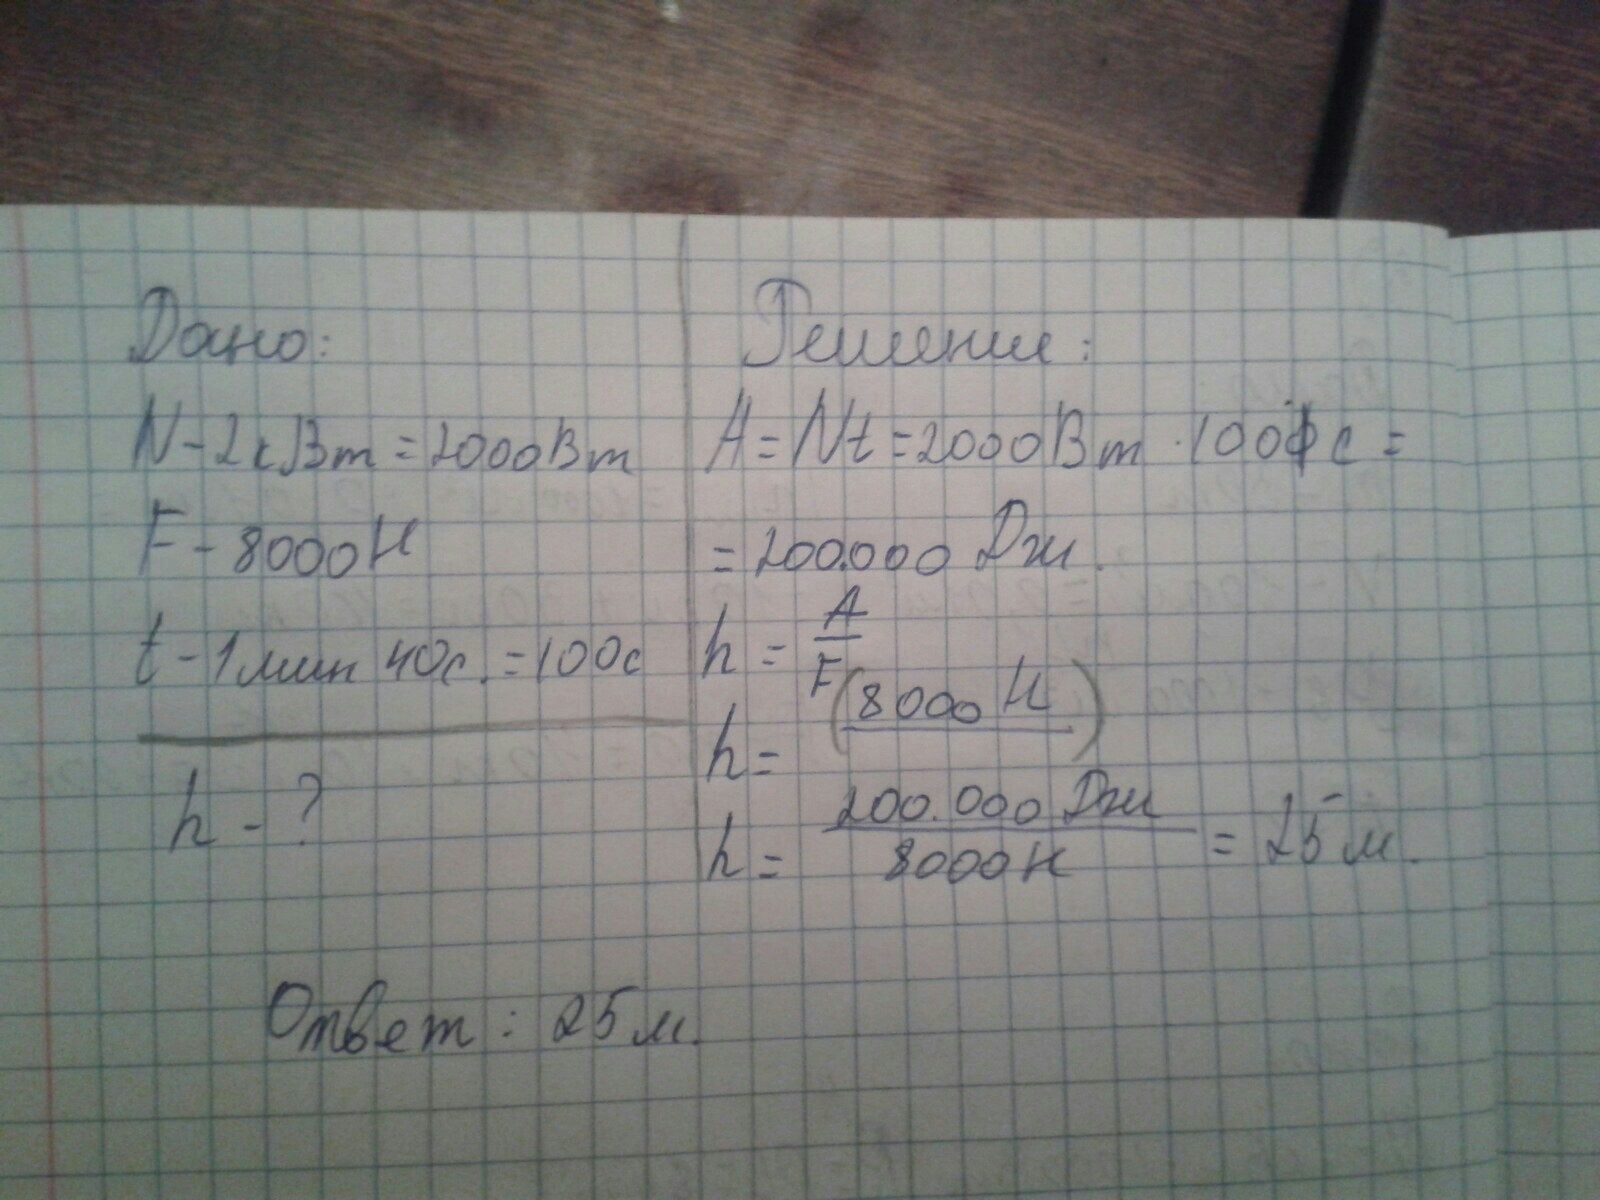 Дано:
N - 2кВт = 2000Вт
F - 8000Н
t - 1мин 40с. = 100с
h - ?
Решение:
A = Nt = 2000Вт · 100 с =
= 200.000 Дж.
h = A/F
h = (8000 Н)
h = 200.000 Дж / 8000Н = 25 м.
Ответ: 25 м.